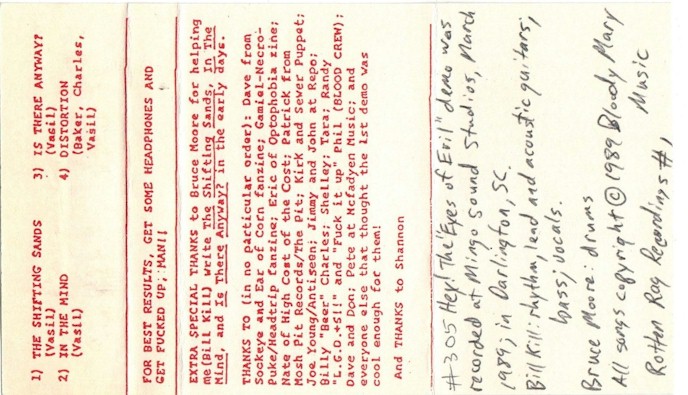 1) THE SHIFTING SANDS
(Vasil)
2) IN THE MIND
(Vasil)
3) IS THERE ANYWAY?
(Vasil)
4) DISTORTION
(Baker, Charles,
Vasil)
FOR BEST RESULTS, GET SOME HEADPHONES AND
GET FUCKED UP, MAN!!
EXTRA SPECIAL THANKS to Bruce Moore for helping
me(Bill Kill) write The Shifting Sands, In The
Mind, and Is There Anyway? in the early days.
THANKS TO (in no particular order): Dave from
Sockeye and Ear of Corn fanzine; Gamiel-Necro-
Puke/Headtrip fanzine; Eric of Optophobia zine;
Nate of High Cost of the Cost; Patrick from
Mosh Pit Records/The Pit; Kirk and Sewer Puppet;
Joe Young/Antiseen; Jimmy and John at Repo;
Billy "Beer" Charles; Shelley; Tara; Randy
"L.G.D.+S!!" and "Fuck it up" Phil (BLOOD CREW);
Dave and Don; Pete at Mcfadyen Music; and
everyone else that thought the 1st demo was
cool enough for them!
And THANKS to Shannon
#305 Hey! The "Eyes of Evil" demo was
recorded at Mingo Sound Studios, March
1989; in Darlington, SC.
Bill Kill: rhythm, lead and acoustic guitars,
bass; vocals.
Bruce Moore: drums
All songs copyright © 1989 Bloody Mary
Music
Rotten Rag Recordings #1